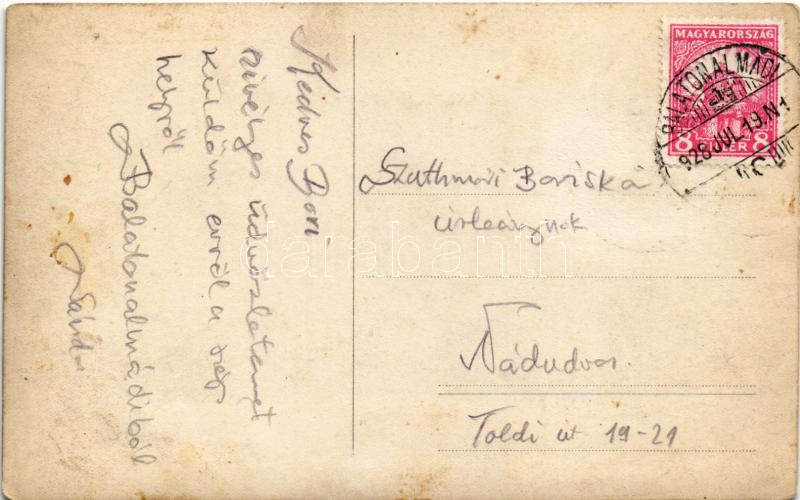 Kedves Bori,
szívélyes üdvözletemet
küldöm erről a szép
helyről
Balatonalmádiból
Sándor
MAGYARORSZÁG
8 8
BALATONALMÁDI
928 JUL. 19. N 1
Szathmári Boriska
úrleánynak
Nádudvar.
Toldi út 19-21
darabanth